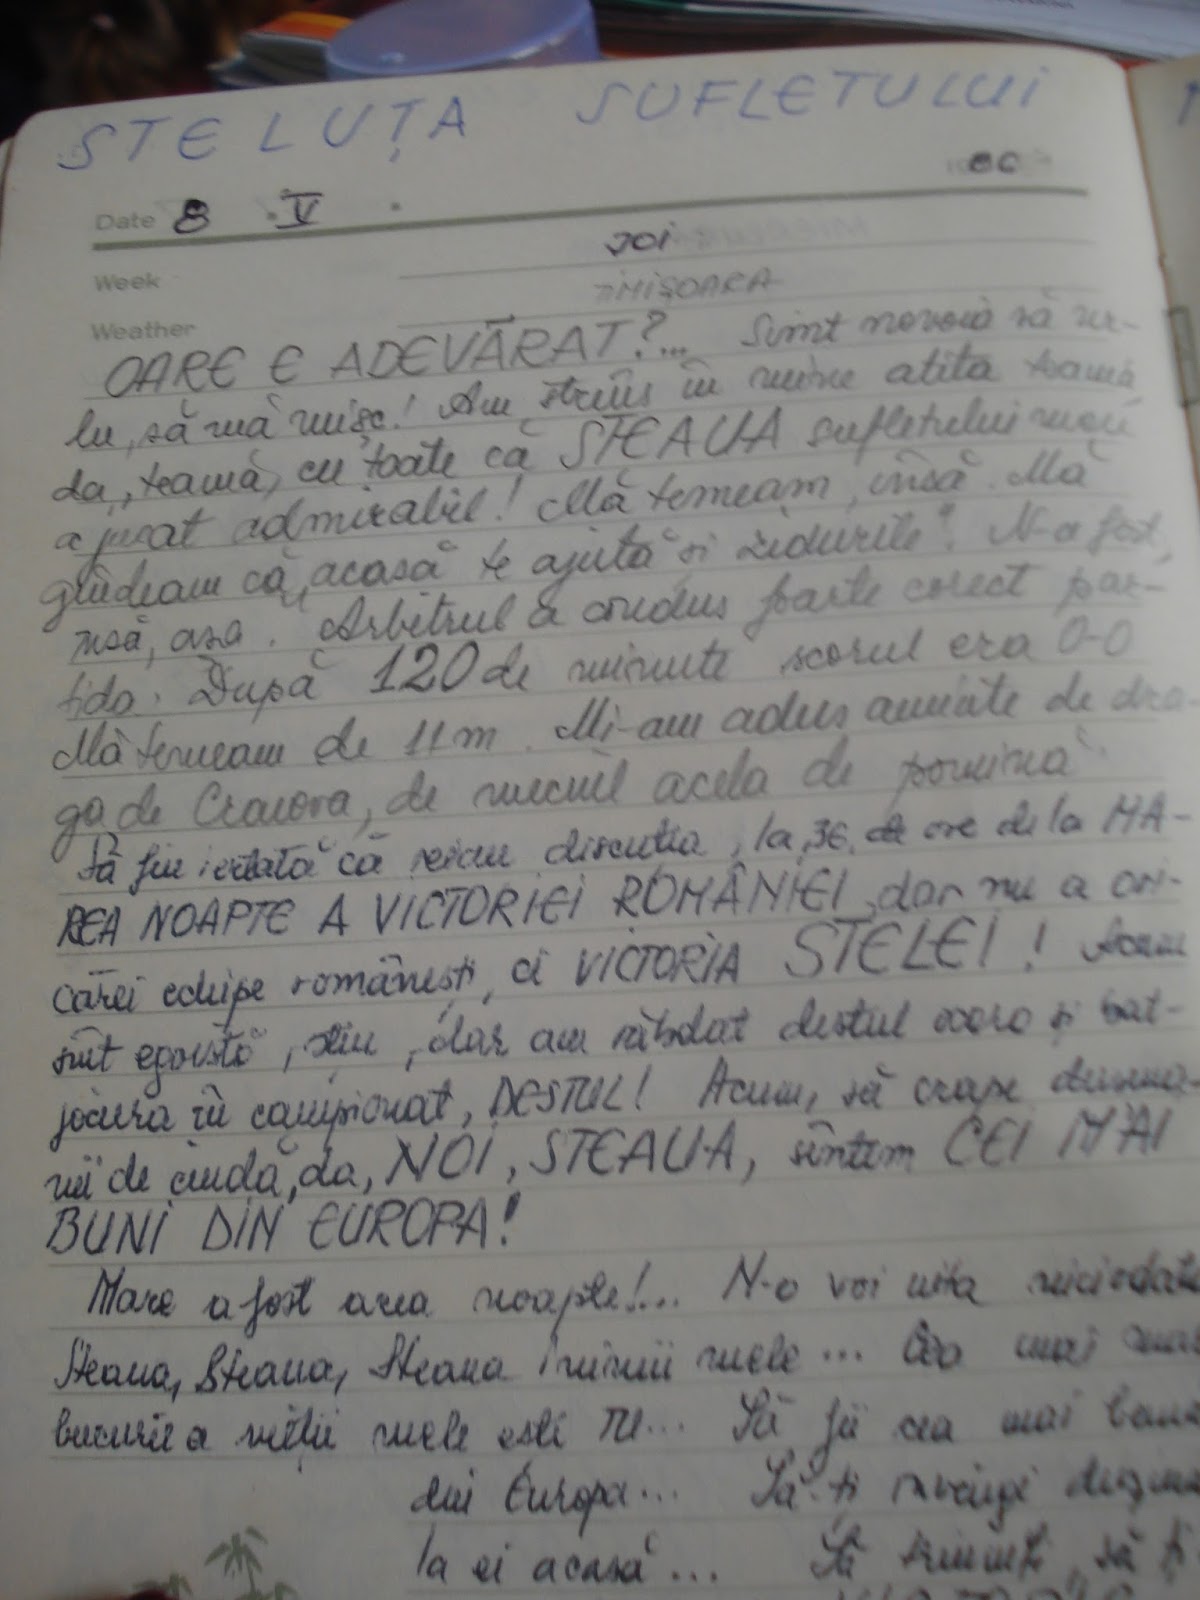 STELUȚA SUFLETULUI
Date 8 . V . 86
Week JOI
Weather TIMIȘOARA
OARE E ADEVĂRAT?... Simt nevoia să ur-
lu, să mă mișc! Am strîns în mine atîta teamă
da, teamă, cu toate că STEAUA sufletului meu
a jucat admirabil! Mă temeam, însă. Mă
gîndeam că „acasă te ajută și zidurile". N-a fost,
însă, așa. Arbitrul a condus foarte corect par-
tida. După 120 de minute scorul era 0-0
Mă temeam de 11 m. Mi-am adus aminte de dra-
ga de Craiova, de meciul acela de pomină
Să fiu iertată că reiau discuția, la 36 de ore de la MA-
REA NOAPTE A VICTORIEI ROMÂNIEI, dar nu a ori-
cărei echipe românești, ci VICTORIA STELEI! Acum
sînt egoistă, știu, dar am răbdat destul ocoro și bat-
jocura în campionat, DESTUL! Acum, să crape dușma-
nii de ciudă, da, NOI, STEAUA, sîntem CEI MAI
BUNI DIN EUROPA!
Mare a fost acea noapte!... N-o voi uita niciodată
Steaua, Steaua, Steaua inimii mele... Cea mai mare
bucurie a vieții mele ești TU... Să fii cea mai bună
din Europa... Să-ți învingi dușma
la ei acasă... Să să ți